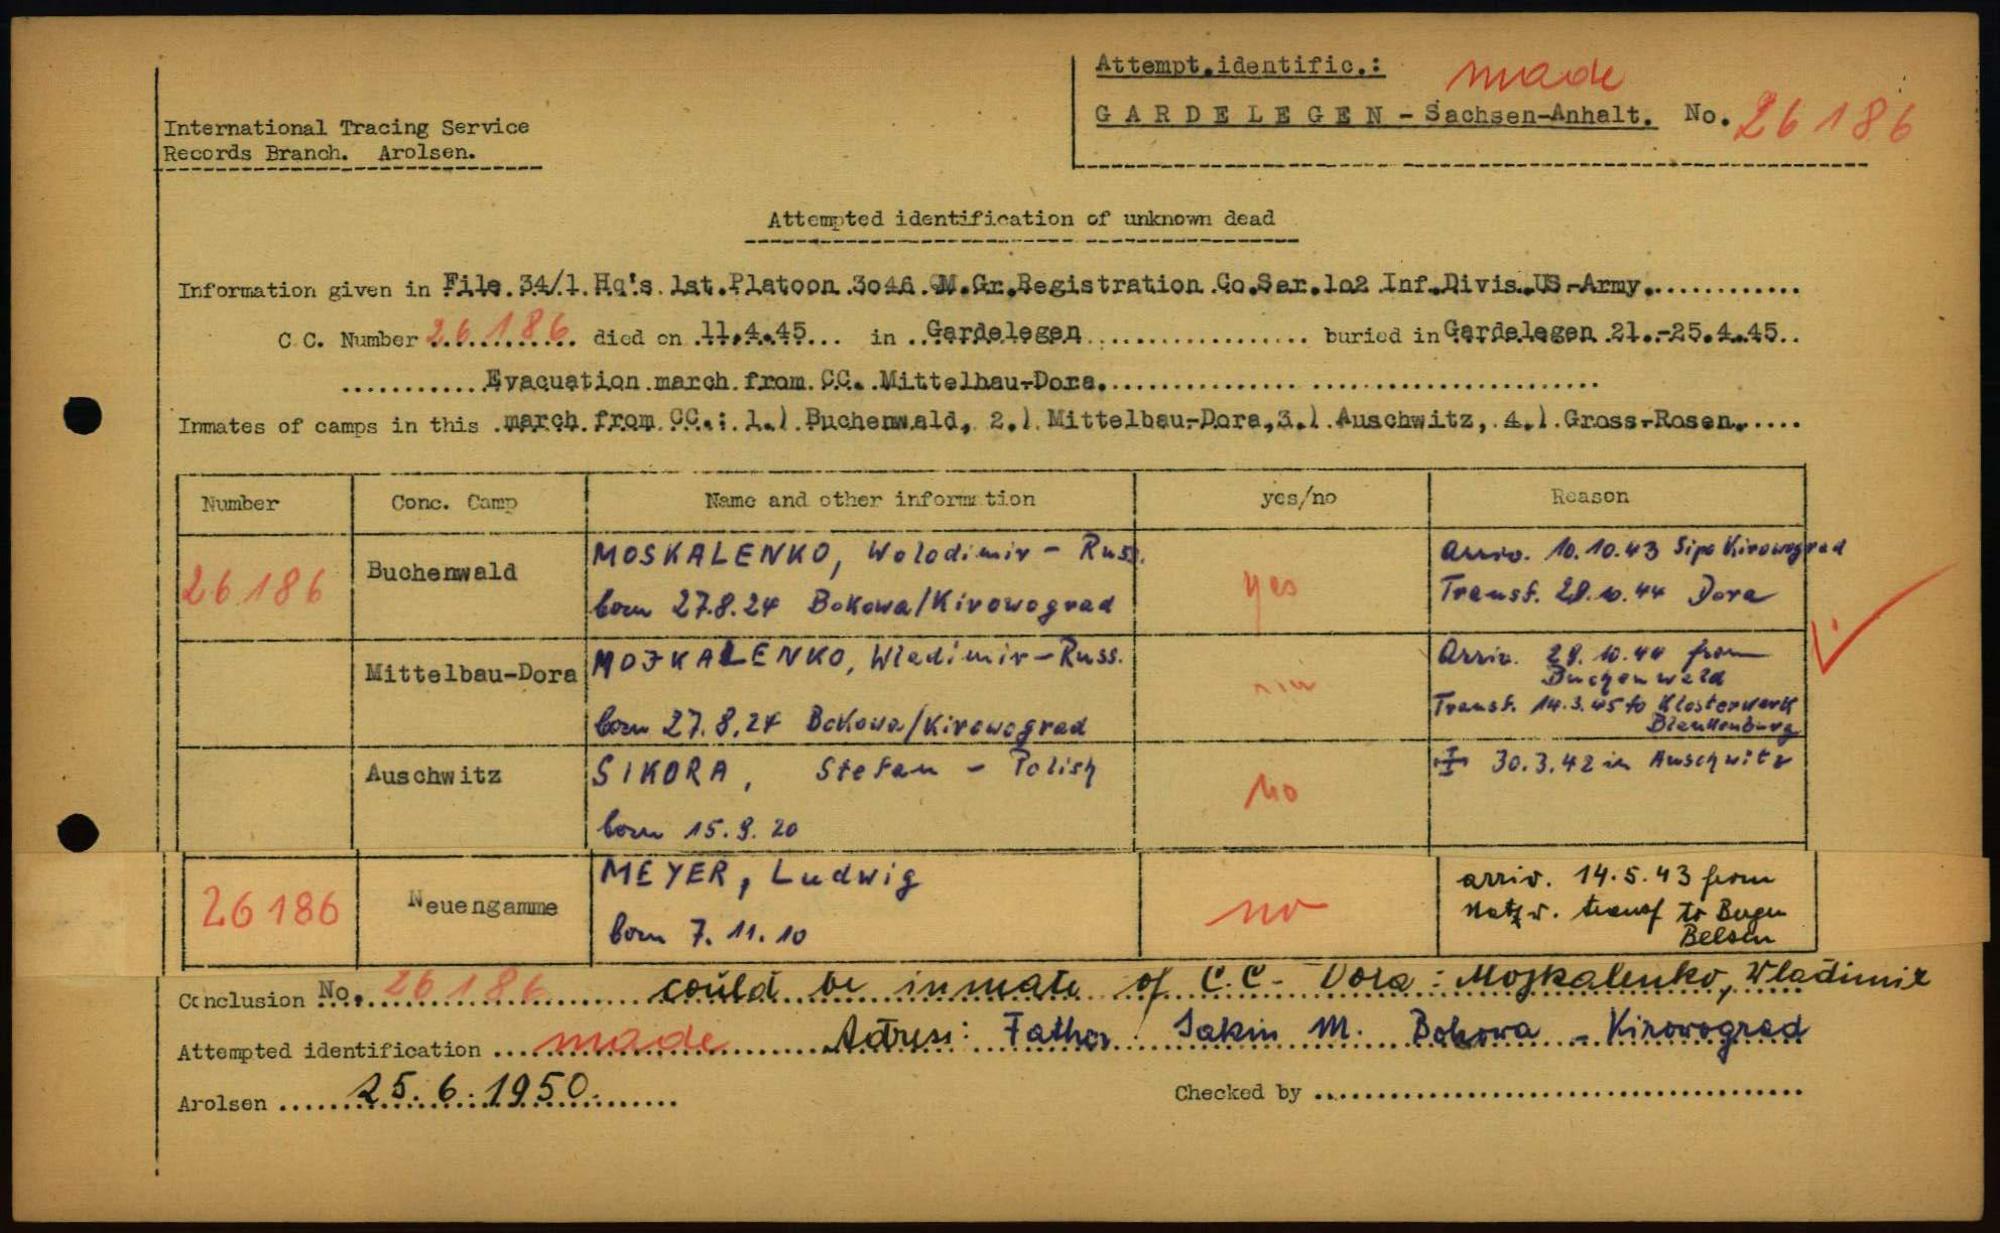 Attempt.identific.: made
GARDELEGEN - Sachsen-Anhalt. No. 26186
International Tracing Service
Records Branch. Arolsen.
Attempted identification of unknown dead
Information given in File 34/1 Hq's 1st.Platoon 3046 QM.Gr.Registration Co.Ser.1o2 Inf.Divis.US-Army
C.C. Number 26186 died on 11.4.45 in Gardelegen buried in Gardelegen 21.-25.4.45
Evacuation march from CC. Mittelbau-Dora.
Inmates of camps in this march from CC.: 1.) Buchenwald, 2.) Mittelbau-Dora, 3.) Auschwitz, 4.) Gross-Rosen.
Number Conc. Camp Name and other information yes/no Reason
26186 Buchenwald MOSKALENKO, Wolodimir - Russ. yes Arriv. 10.10.43 Sipo Kirowograd
born 27.8.24 Bokowa/Kirowograd Transf. 28.10.44 Dora
Mittelbau-Dora MOJKALENKO, Wladimir - Russ. Arriv. 28.10.44 from
Buchenwald
born 27.8.24 Bokowa/Kirowograd Transf. 14.3.45 to Klosterwerk
Blankenburg
Auschwitz SIKORA, Stefan - Polish no 30.3.42 in Auschwitz
born 15.9.20
26186 Neuengamme MEYER, Ludwig no arriv. 14.5.43 from
born 7.11.10 Natzw. transf to Bergen
Belsen
Conclusion No. 26186 could be inmate of C.C- Dora: Mojkalenko, Wladimir
Attempted identification made Adress: Father Jakin M. Bokowa - Kirowograd
Arolsen 25.6.1950. Checked by